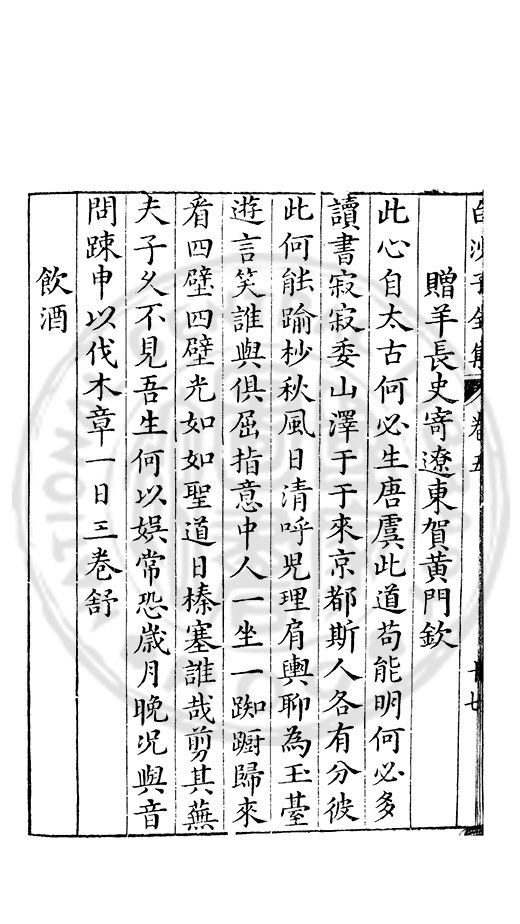 白沙子全集 卷五 十七
贈羊長史寄遼東賀黃門欽
此心自太古何必生唐虞此道苟能明何必多
讀書寂寂委山澤于于來京都斯人各有分彼
此何能踰杪秋風日清呼兒理肩輿聊為玉臺
遊言笑誰與俱屈指意中人一坐一踟躕歸來
看四壁四壁光如如聖道日榛塞誰哉剪其蕪
夫子久不見吾生何以娛常恐歲月晚況與音
問踈申以伐木章一日三卷舒
飲酒